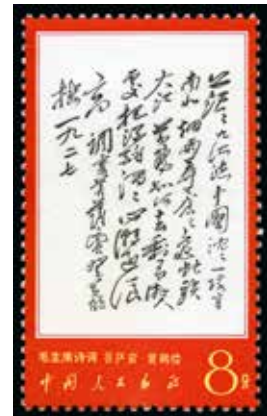 茫茫九派流中国 沉沉一线穿
南北 烟雨莽苍苍 龟蛇锁
大江 黄鹤知何去 剩有游人
处 把酒酹滔滔 心潮逐浪
高 调寄菩萨蛮 登黄鹤
楼 一九二七
毛主席诗词 菩萨蛮 黄鹤楼
中国人民邮政 8分